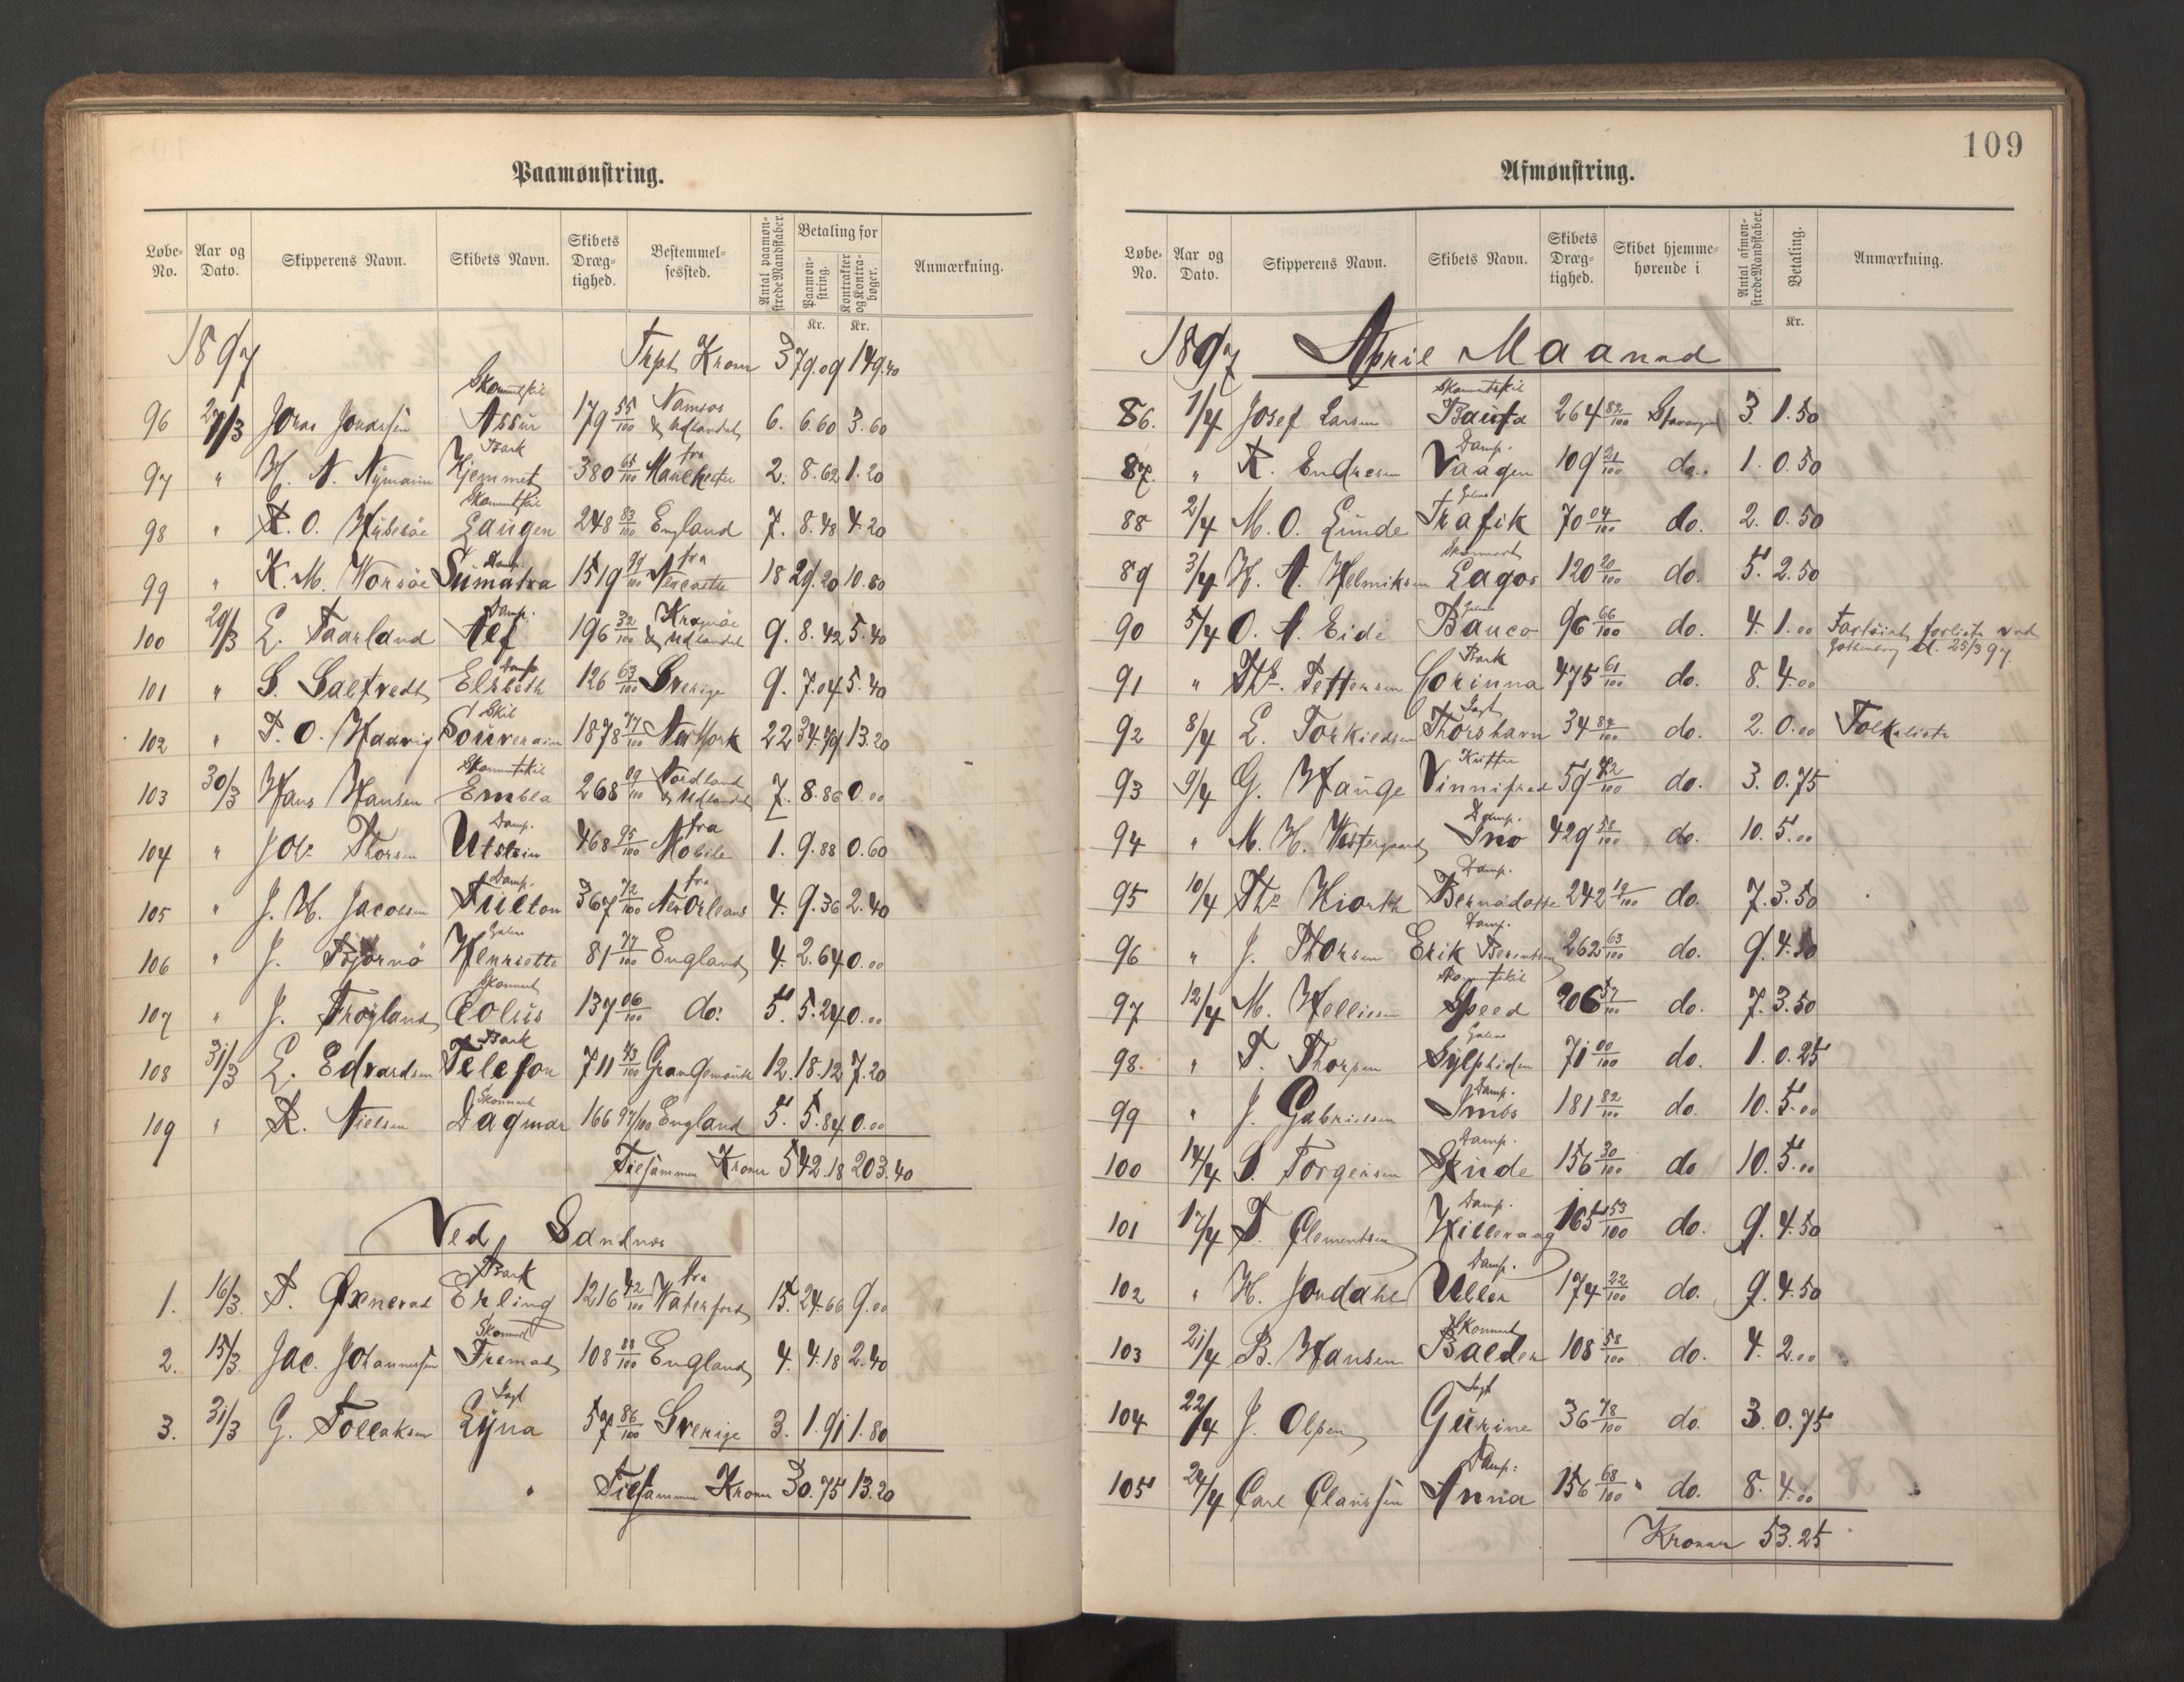 Paamønstring.
Løbe-No. Aar og Dato. Skipperens Navn. Skibets Navn. Skibets Dræg-tighed. Bestemmel-sessted. Antal paamøn-strede Mandskaber. Betaling for Paamøn-string. Kontrakter og Kontra-bøger. Anmærkning.
Kr. Kr.
1897 Trpt Kroner 379.09 149.40
96 27/3 Jonas Jonassen Skonnertskib Assur 179 55/100 Namsos & Udlandet 6. 6.60 3.60
97 " H. A. Nymann Bark Hjemmet 380 65/100 fra Manchester 2. 8.62 1.20
98 " R. O. Skonnertskib Laugen 248 83/100 England 7. 8.48 4.20
99 " K. M. Worsöe Damp. Sumatra 1519 fra 18 29.20 10.80
100 29/3 L. Taarland Damp. Alf 196 32/100 & Udlandet 9. 8.42 5.40
101 " S. Saltvedt Damp Elsbeth 126 63/100 Sverige 9. 7.04 5.40
102 " T. O. Haavig Skib Souverain 1878 77/100 New York 22 34.79 13.20
103 30/3 Hans Hansen Skonnertskib Embla 268 09/100 Nordland & Udlandet 7. 8.86 0.00
104 " Johs Thorsen Damp. Utstein 468 95/100 fra Mobile 1. 9.88 0.60
105 " J. H. Jacobsen Damp. Fulton 367 72/100 fra New Orleans 4. 9.36 2.40
106 " J. Bjørnö Galeas Henriette 81 77/100 England 4. 2.64 0.00
107 " J. Frøyland Skonnert Eolus 137 06/100 do. 5. 5.24 0.00
108 31/3 L. Edvardsen Bark Telefon 711 43/100 Grangemouth 12. 18.12 7.20
109 " R. Nielsen Skonnert Dagmar 166 97/100 England 5. 5.84 0.00
Tilsammen Kroner 542.18 203.40
Ved Sandnes
1. 16/3 T. Gxnevad Bark Erling 1216 42/100 fra Waterford 15. 24.66 9.00
2. 15/3 Jac. Johannessen Skonnert Fremad 108 88/100 England 4. 4.18 2.40
3. 31/3 G. Tollaksen Jagt Lyna 57 86/100 Sverige 3. 1.91 1.80
Tilsammen Kroner 30.75 13.20
109
Afmønstring.
Løbe-No. Aar og Dato. Skipperens Navn. Skibets Navn. Skibets Dræg-tighed. Skibet hjemme-hørende i Antal afmøn-strede Mandskaber. Betaling. Anmærkning.
Kr.
1897 April Maaned
86. 1/4 Josef Larsen Skonnertskib Bauta 264 82/100 Stavanger 3. 1.50
87. " R. Endresen Damp. Vaagen 109 21/100 do. 1. 0.50
88 2/4 M. O. Lunde Galeas Trafik 70 04/100 do. 2. 0.50
89 3/4 H. A. Helmiksen Skonnert Lagos 120 20/100 do. 5. 2.50
90 5/4 O. A. Eide Galeas Banco 96 66/100 do. 4. 1.00 Fartöiet forliste ved Gothenborg d. 25/3 97.
91 " Ths. Pettersen Bark Corinna 475 61/100 do. 8. 4.00
92 8/4 L. Torkildsen Jagt Thorshavn 34 84/100 do. 2. 0.00 Folkeliste
93 9/4 G. Hauge Kutter Vinnifred 59 42/100 do. 3. 0.75
94 " M. H. Westergaard Damp. Ino 429 58/100 do. 10. 5.00
95 10/4 Ths Kiorth Damp. Bernadotte 242 19/100 do. 7. 3.50
96 " J. Thorsen Damp. Erik Berentsen 262 63/100 do. 9. 4.50
97 12/4 M. Hellisen Skonnertskib Speed 206 57 do. 7. 3.50
98. " T. Thorsen Galeas Sylphiden 71 00/100 do. 1. 0.25
99 " J. Gabrielsen Damp. Imbs 181 82/100 do. 10. 5.00
100 14/4 S. Torgersen Damp. Skude 156 30/100 do 10. 5.00
101 17/4 T. Clementsen Damp. Hillevaag 165 53/100 do. 9. 4.50
102 " H. Jondahl Damp. Uller 174 22/100 do. 9. 4.50
103 21/4 B. Hansen Skonnert Balder 108 58/100 do. 4. 2.00
104 22/4 J. Olsen Jagt Gurine 36 78/100 do. 3. 0.75
105 24/4 Carl Claussen Damp. Anna 156 68/100 do. 8. 4.00
Kroner 53.25